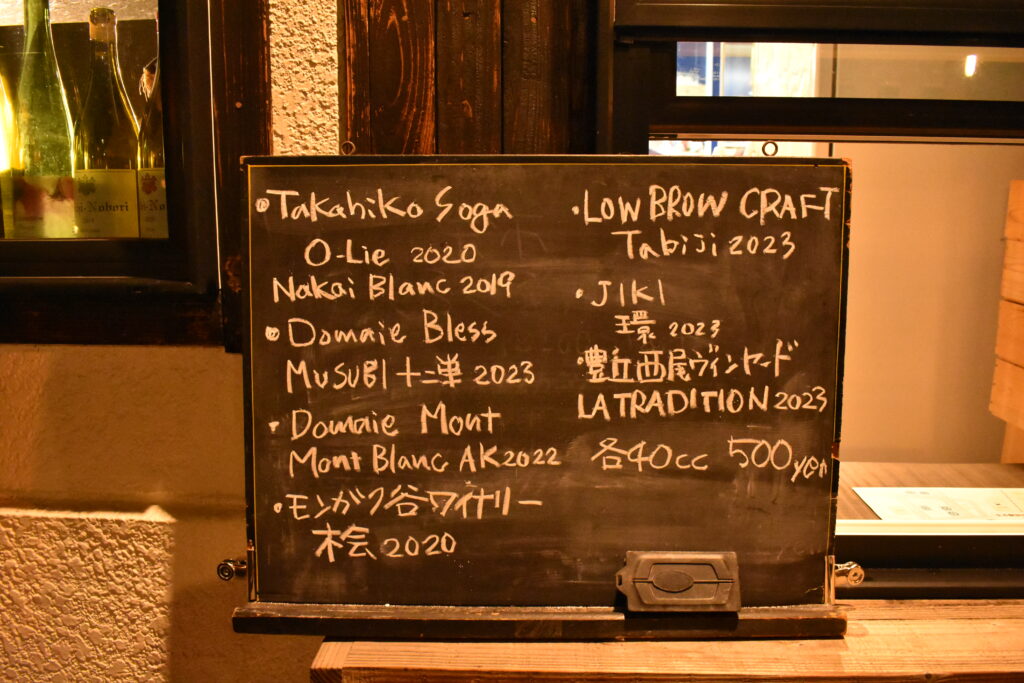 • Takahiko Soga
O-Lie 2020
Nakai Blanc 2019
• Domaie Bless
MUSUBI 十二単 2023
• Domaie Mont
Mont Blanc AK 2022
• モンガク谷ワイナリー
桧 2020
• LOW BROW CRAFT
Tabiji 2023
• JIKI
環 2023
• 豊丘西尾ヴィンヤード
LA TRADITION 2023
各40cc 500yen